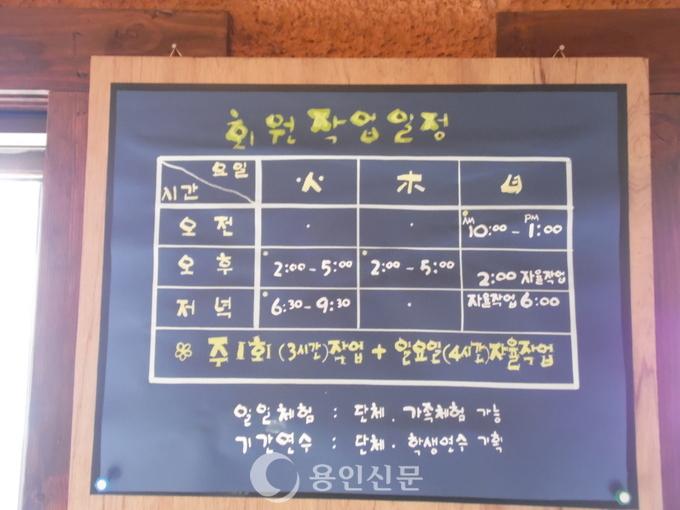 회원작업일정
요일 火 木 日
시간
오전 · · AM 10:00 - PM 1:00
오후 2:00 - 5:00 2:00 - 5:00 2:00 자율작업
저녁 6:30 - 9:30 · 자율작업 6:00
주 1회 (3시간)작업 + 일요일(4시간)자율작업
일일체험 : 단체 . 가족체험 가능
기간연수 : 단체 . 학생연수 기획
용인신문